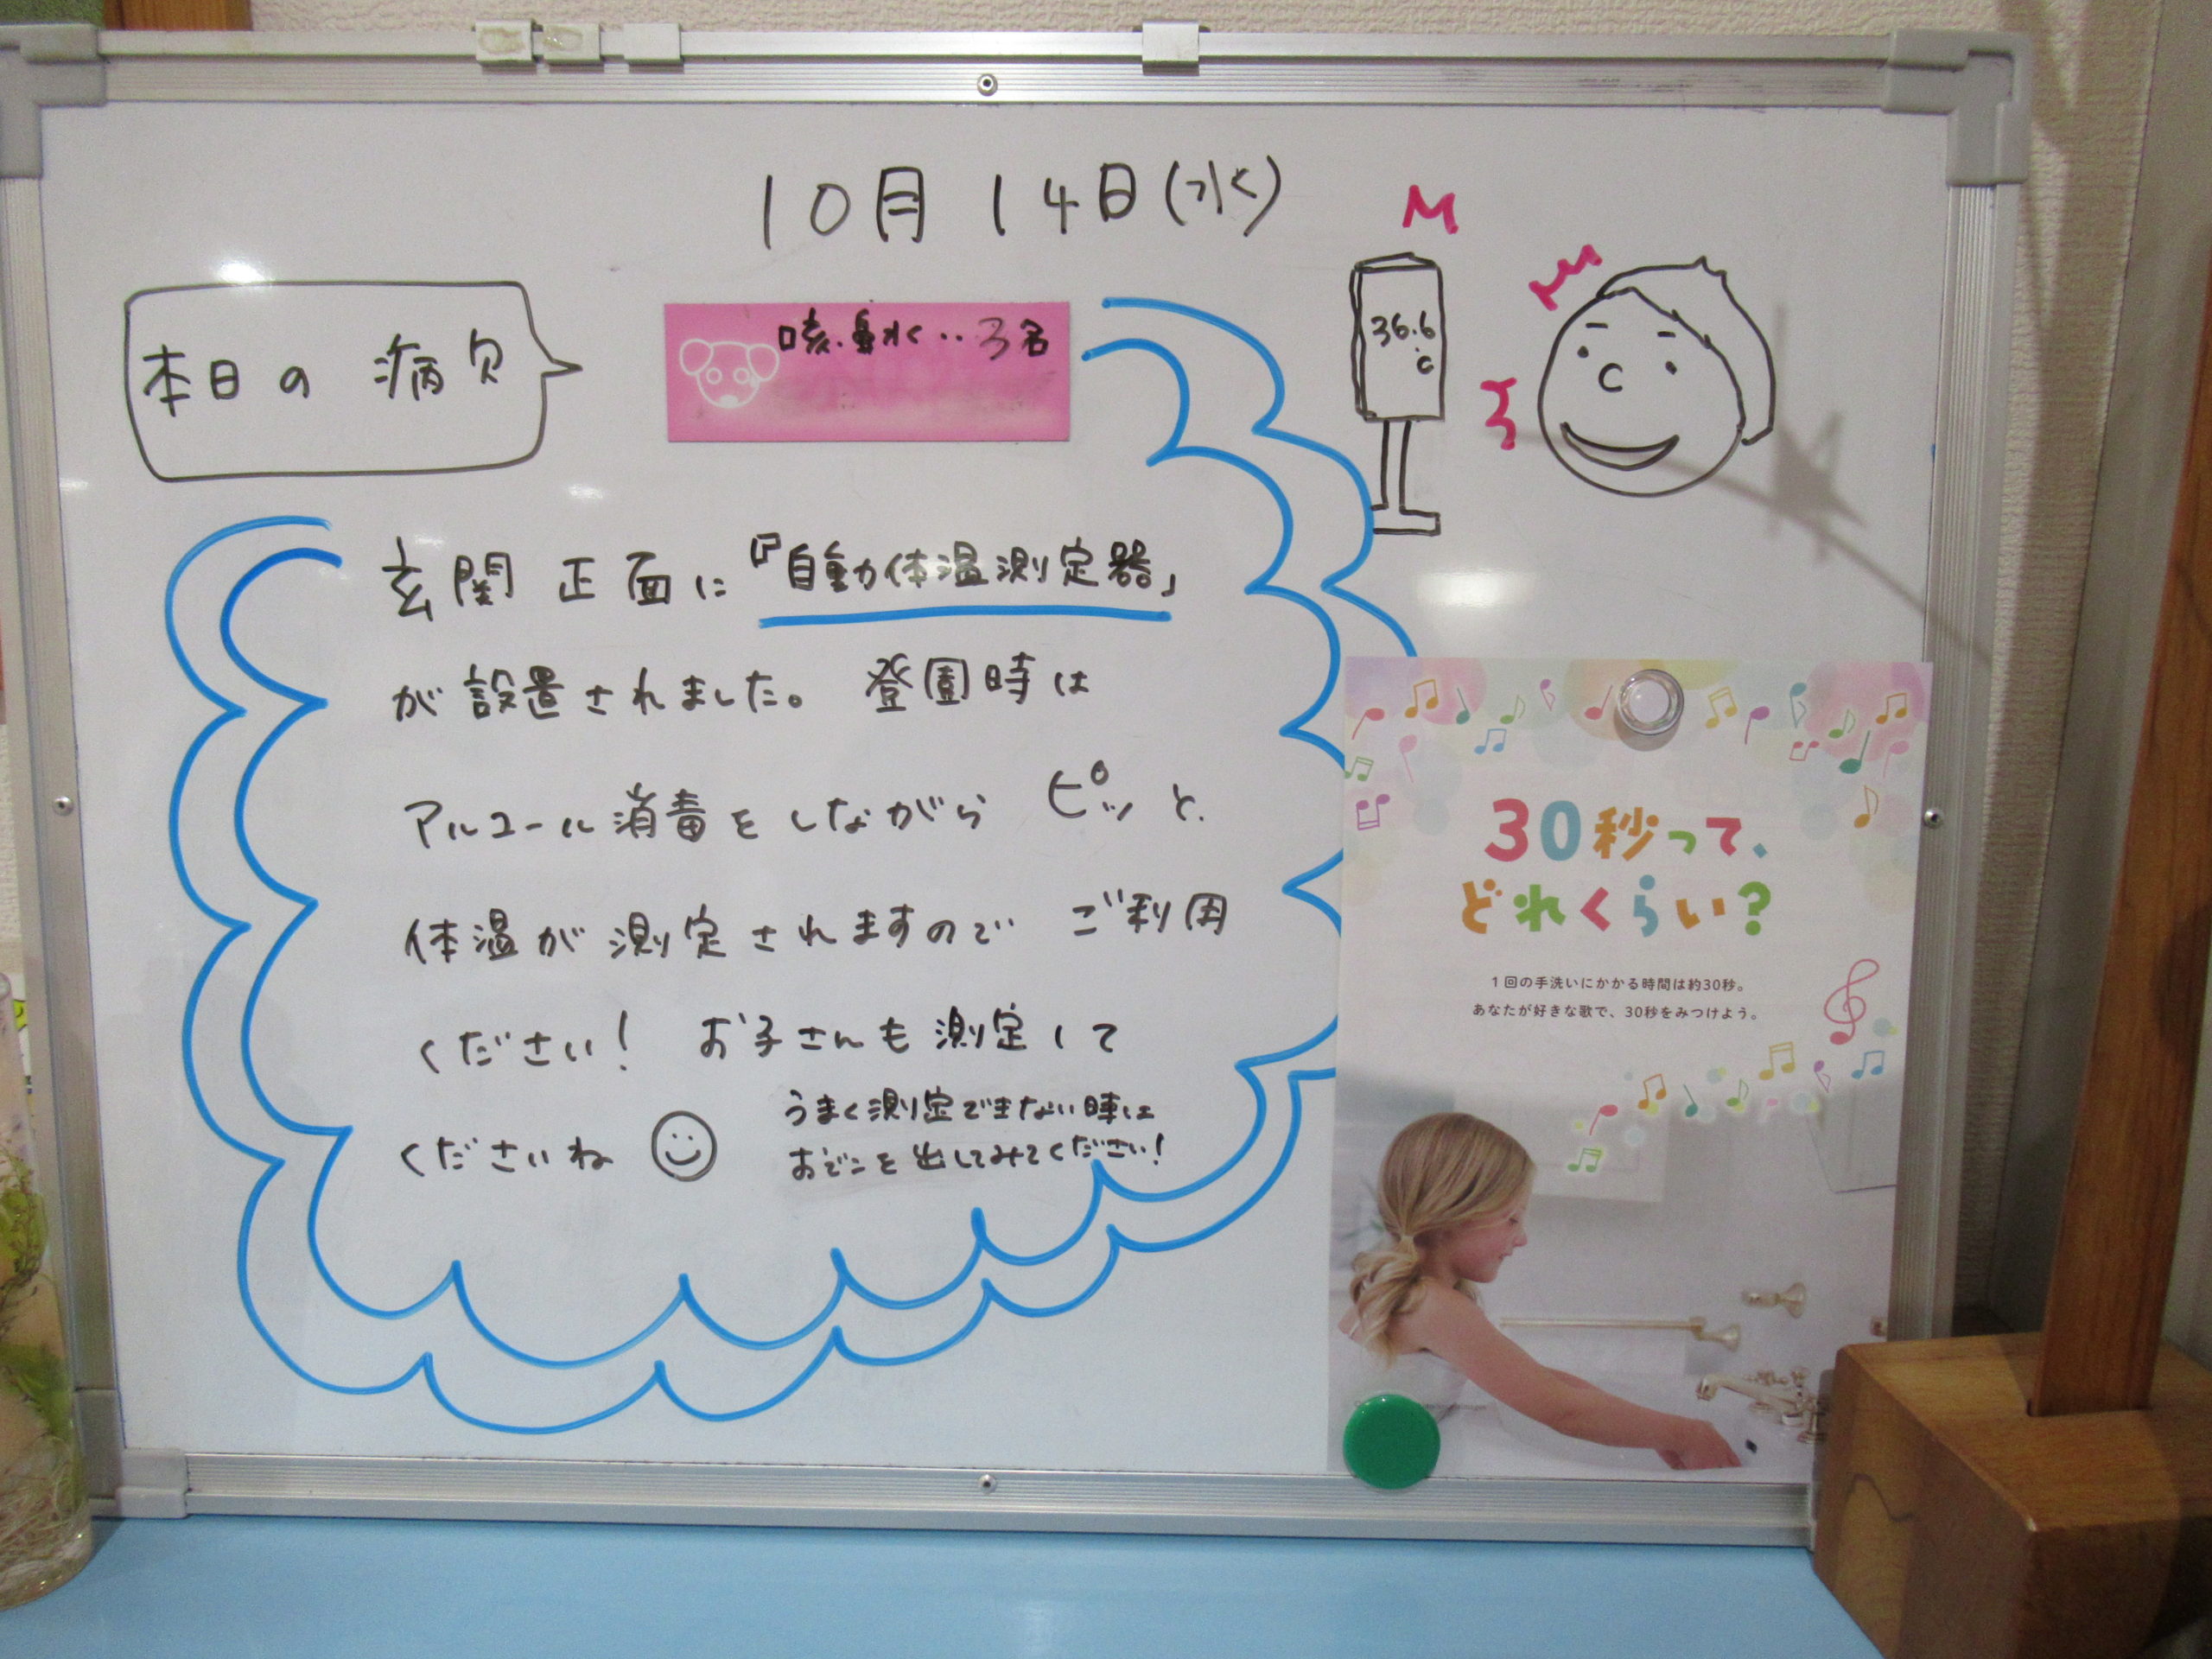 10月14日(水)
本日の病欠
咳・鼻水‥3名
36.6
℃
玄関正面に『自動体温測定器』
が設置されました。登園時は
アルコール消毒をしながらピッと、
体温が測定されますのでご利用
ください！お子さんも測定して
くださいね
うまく測定できない時は
おでこを出してみてください！
30秒って、
どれくらい?
1回の手洗いにかかる時間は約30秒。
あなたが好きな歌で、30秒をみつけよう。